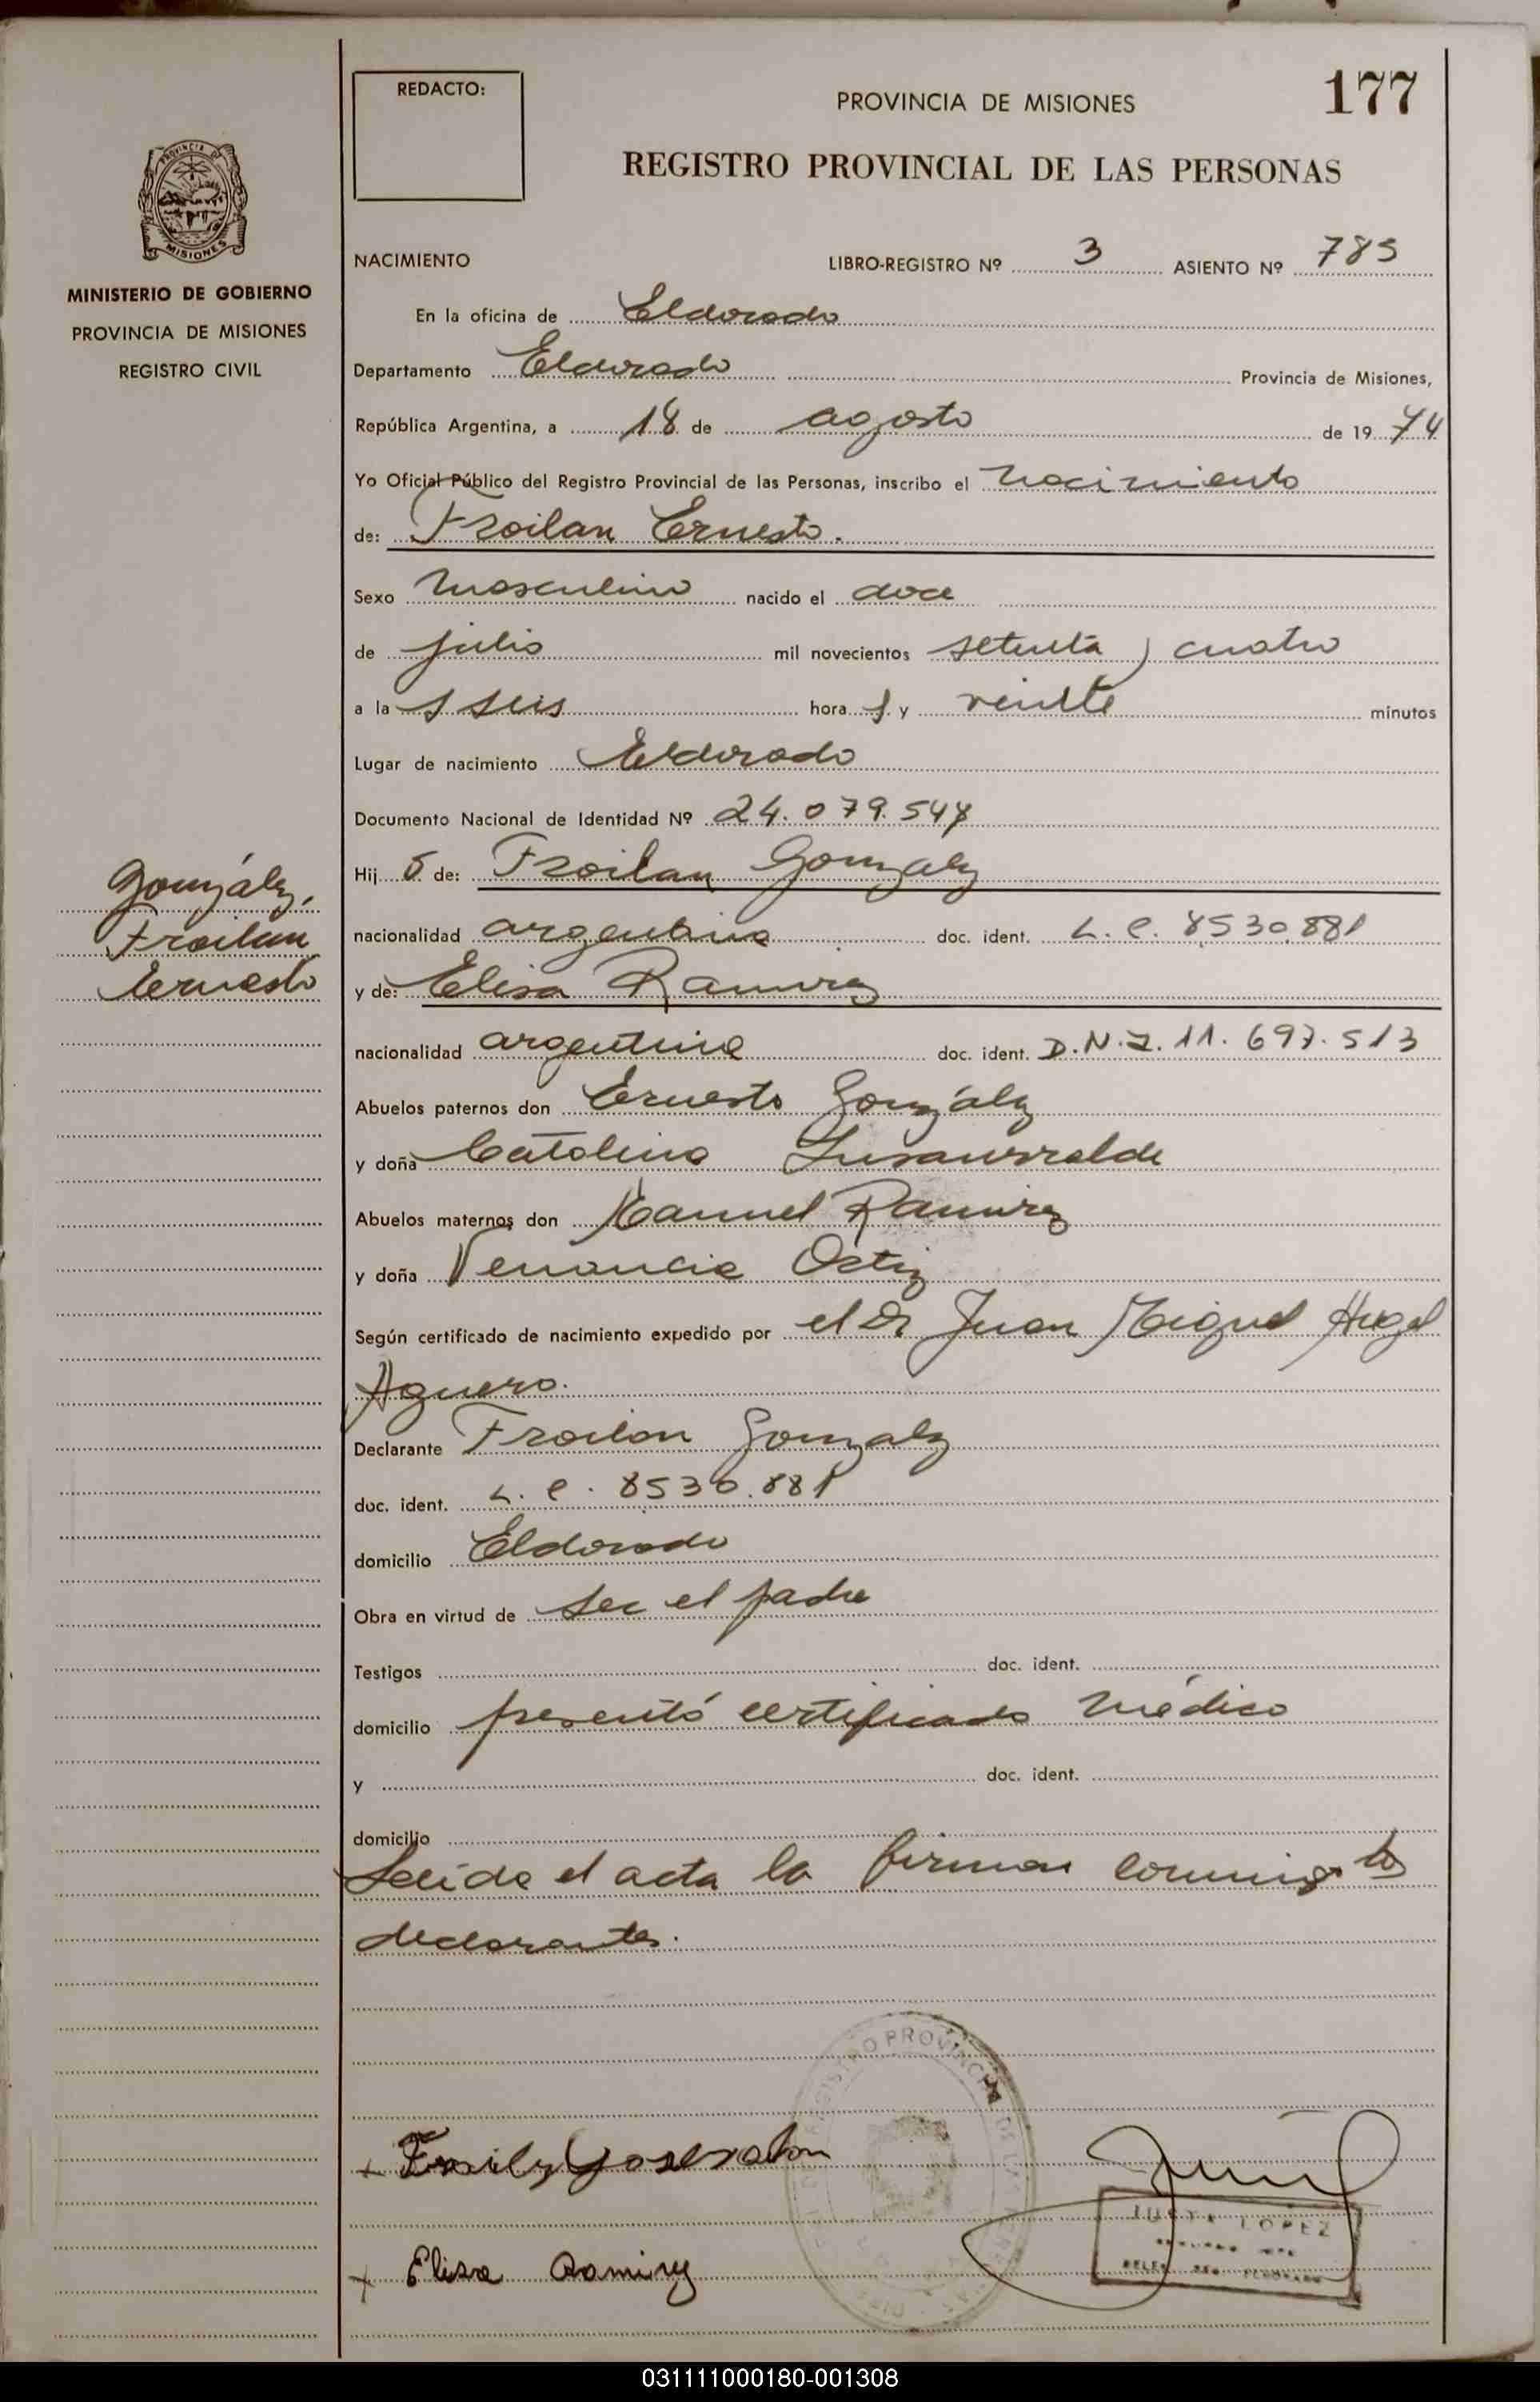 REDACTO:
PROVINCIA DE MISIONES
177
REGISTRO PROVINCIAL DE LAS PERSONAS
PROVINCIA DE
MISIONES
MINISTERIO DE GOBIERNO
PROVINCIA DE MISIONES
REGISTRO CIVIL
NACIMIENTO LIBRO-REGISTRO Nº 3 ASIENTO Nº 785
En la oficina de Eldorado
Departamento Eldorado Provincia de Misiones,
República Argentina, a 18 de agosto de 19 74
Yo Oficial Público del Registro Provincial de las Personas, inscribo el nacimiento
de: Froilan Ernesto.
Sexo masculino nacido el doce
de julio mil novecientos setenta y cuatro
a la s seis hora s y veinte minutos
Lugar de nacimiento Eldorado
Documento Nacional de Identidad Nº 24.079.548
Hij o de: Froilan Gonzalez
González,
Froilan
Ernesto
nacionalidad argentina doc. ident. L. E. 8530.881
y de: Elisa Ramirez
nacionalidad argentina doc. ident. D.N.I. 11.697.513
Abuelos paternos don Ernesto González
y doña Catalina Insaurralde
Abuelos maternos don Manuel Ramirez
y doña Venancia Ortiz
Según certificado de nacimiento expedido por el Dr Juan Miguel Angel
Aguero.
Declarante Froilan Gonzalez
doc. ident. L. E. 8530.881
domicilio Eldorado
Obra en virtud de ser el padre
Testigos doc. ident.
domicilio presentó certificado médico
y doc. ident.
domicilio
Leída el acta la firman conmigo los
declarantes.
REGISTRO PROVINCIAL DE LAS PERSONAS
+ Elisa Ramirez
LOPEZ
031111000180-001308